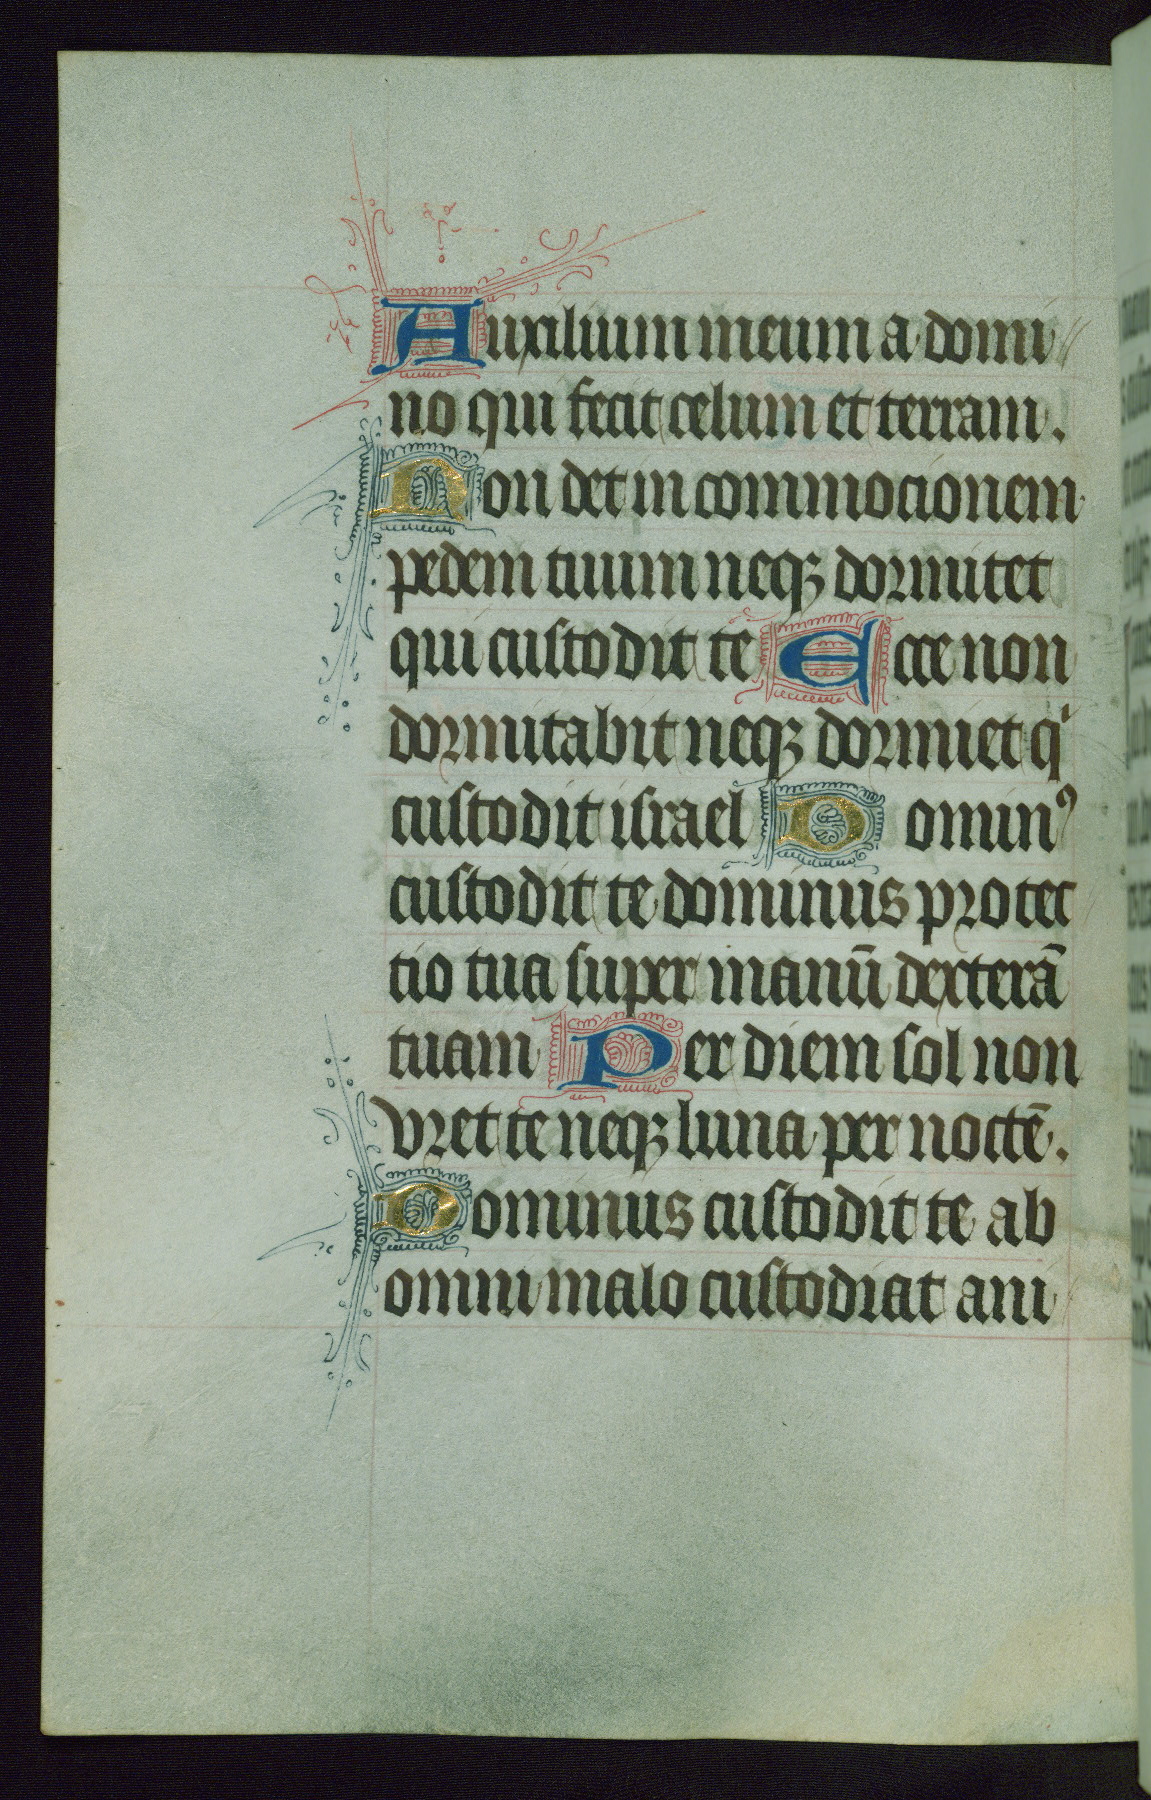 Auxilium meum a domi
no qui fecit celum et terram.
Non det in commocionem
pedem tuum neqꝫ dormitet
qui custodit te Ecce non
dormitabit neqꝫ dormiet qⁱ
custodit israel Dominꝰ
custodit te dominus protec
tio tua super manū dexterā
tuam Per diem sol non
vret te neqꝫ luna per noctē.
Dominus custodit te ab
omni malo custodiat ani